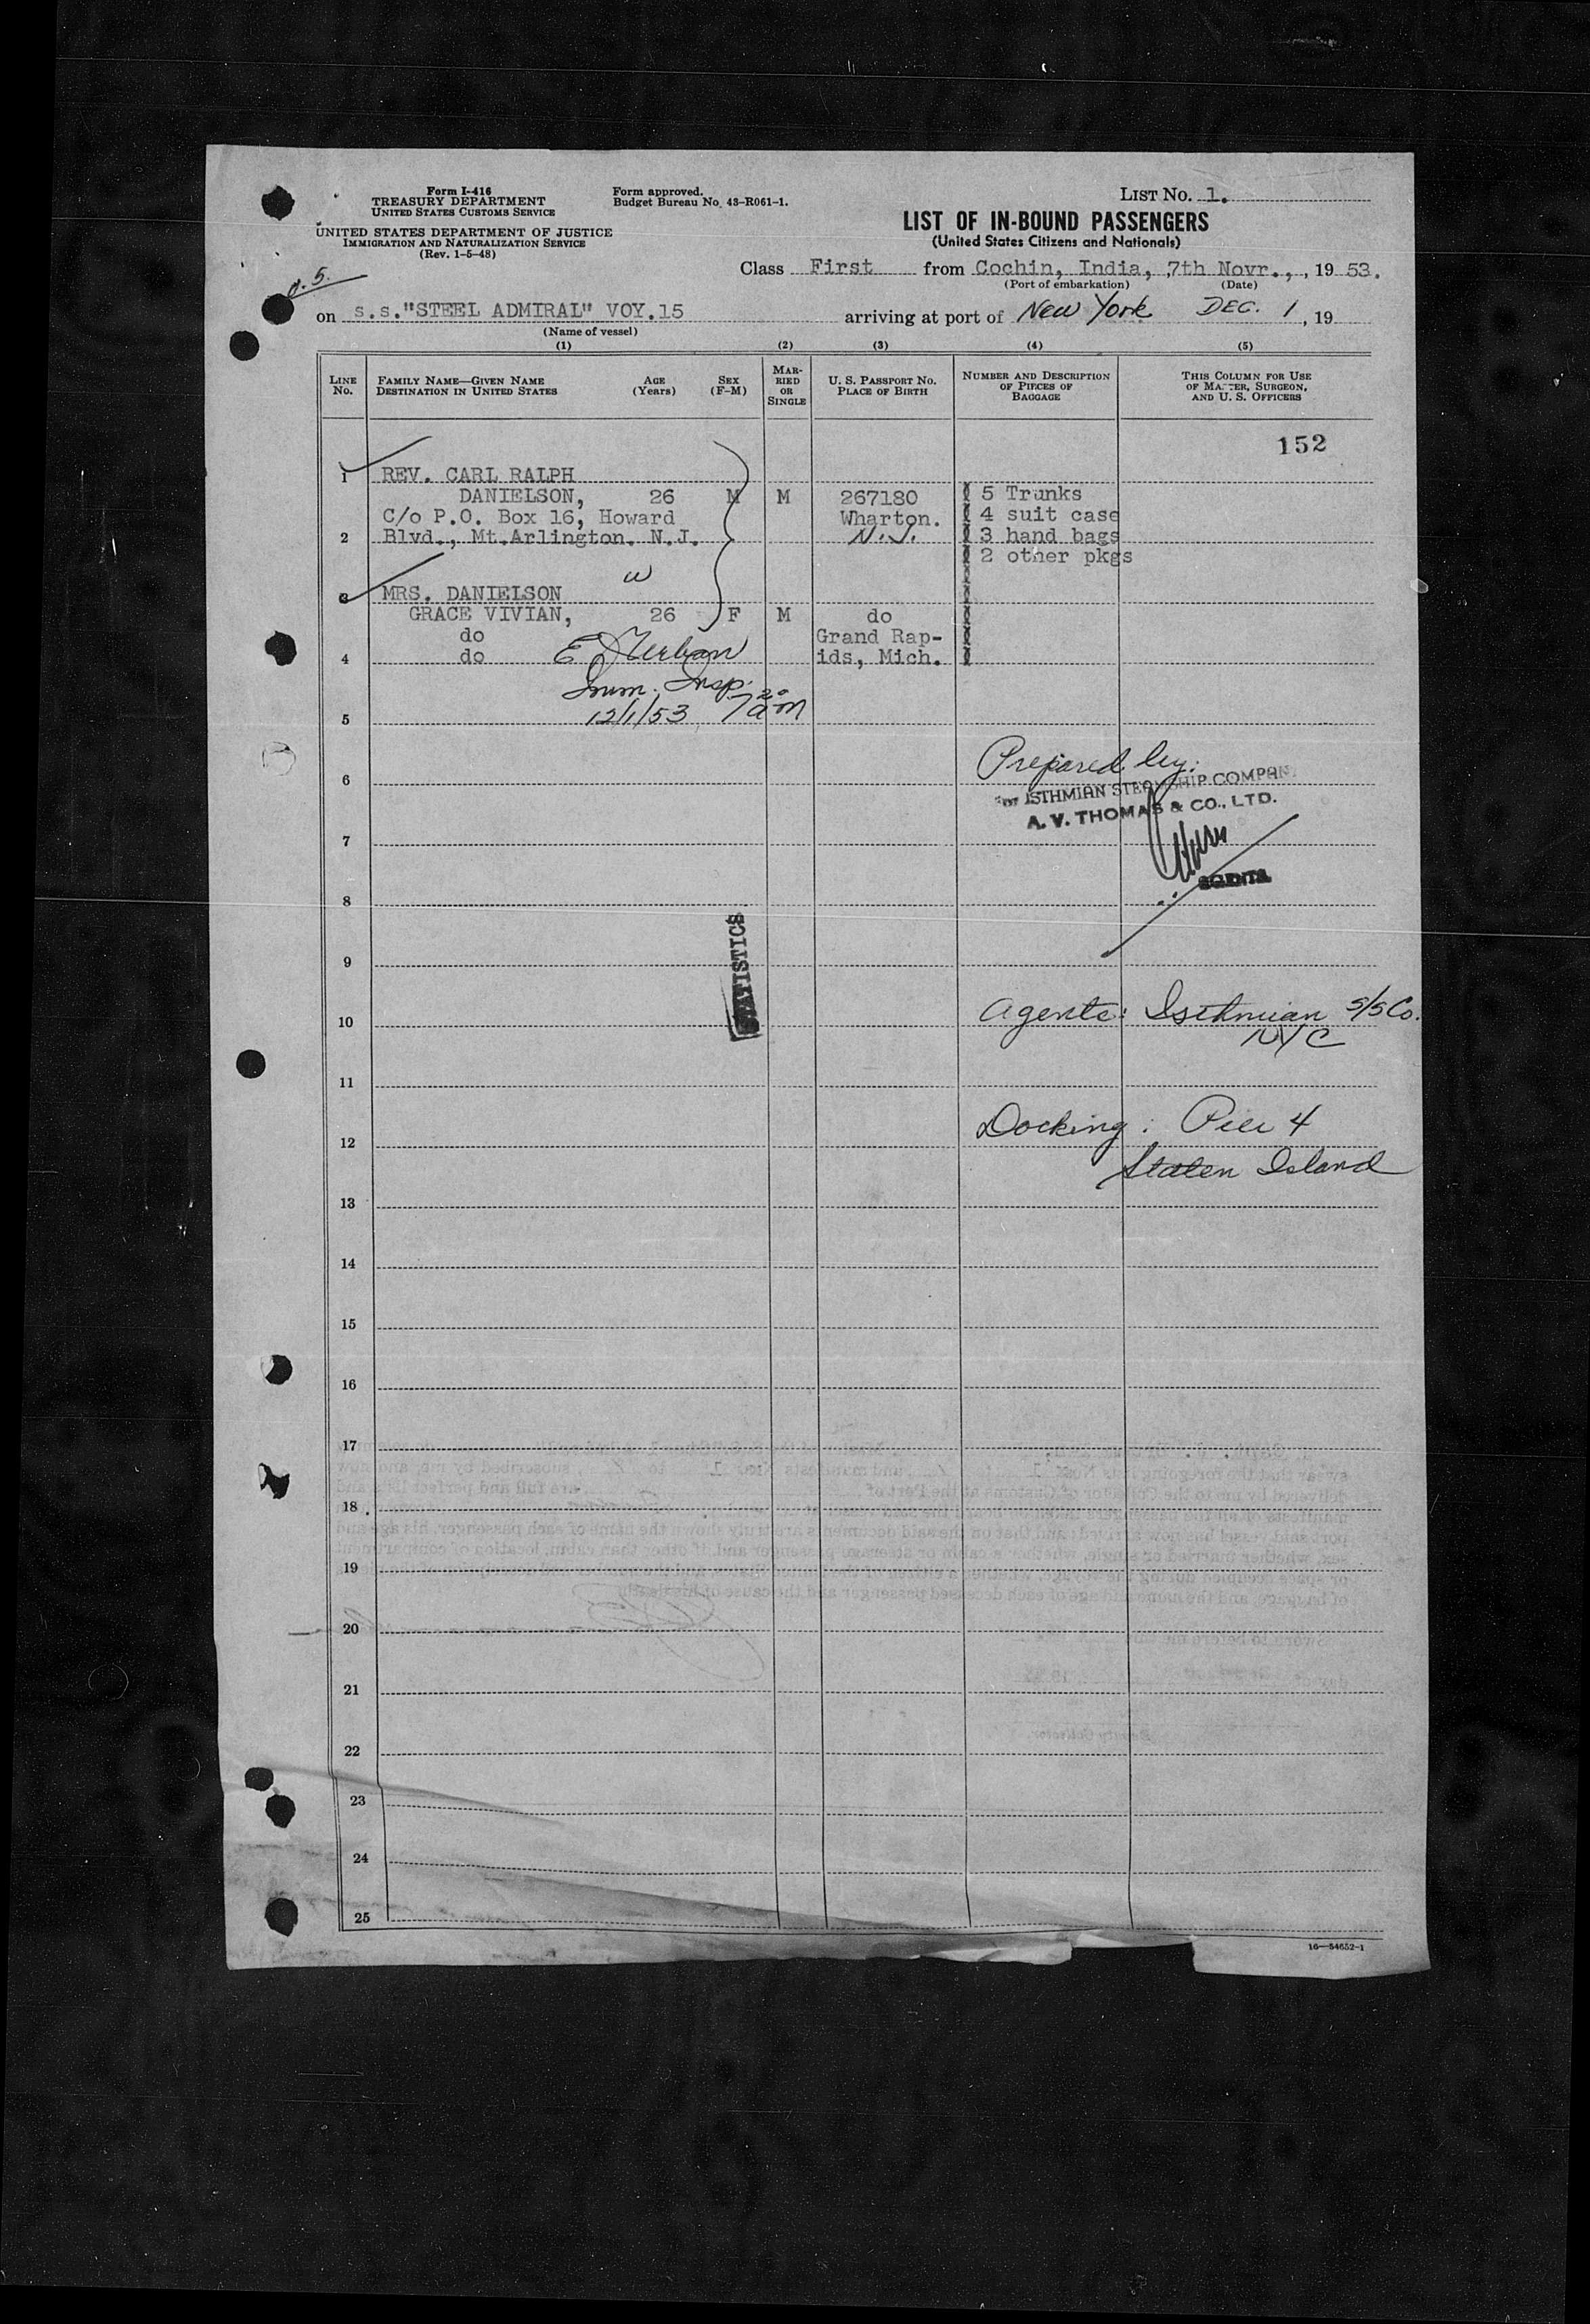 Form I-416
TREASURY DEPARTMENT
UNITED STATES CUSTOMS SERVICE
UNITED STATES DEPARTMENT OF JUSTICE
IMMIGRATION AND NATURALIZATION SERVICE
(Rev. 1-5-48)
Form approved.
Budget Bureau No. 43-R061-1.
LIST NO. 1.
LIST OF IN-BOUND PASSENGERS
(United States Citizens and Nationals)
Class First from Cochin, India, 7th Novr., , 19 53.
(Port of embarkation) (Date)
on s.s."STEEL ADMIRAL" VOY.15 arriving at port of New York DEC. 1, 19
(Name of vessel)
(1) (2) (3) (4) (5)
LINE NO.
FAMILY NAME—GIVEN NAME
DESTINATION IN UNITED STATES
AGE
(Years)
SEX
(F-M)
MAR-
RIED
OR
SINGLE
U. S. PASSPORT NO.
PLACE OF BIRTH
NUMBER AND DESCRIPTION
OF PIECES OF
BAGGAGE
THIS COLUMN FOR USE
OF MASTER, SURGEON,
AND U. S. OFFICERS
152
1 REV. CARL RALPH
DANIELSON, 26 M M 267180 5 Trunks
C/o P.O. Box 16, Howard Wharton. 4 suit case
2 Blvd., Mt.Arlington. N.J. N.J. 3 hand bags
2 other pkgs
3 MRS. DANIELSON
GRACE VIVIAN, 26 F M do
do Grand Rap-
4 do ids, Mich.
Imm. Insp.
5 12/1/53 7 20 am
Prepared by:
6
For ISTHMIAN STEAMSHIP COMPANY
A. V. THOMAS & CO., LTD.
7
AGENTS
8
STATISTICS
9
10 Agents: Isthmian S/S Co.
NYC
11
12 Docking: Pier 4
Staten Island
13
14
15
16
17
18
19
20
21
22
23
24
25
16—54652-1